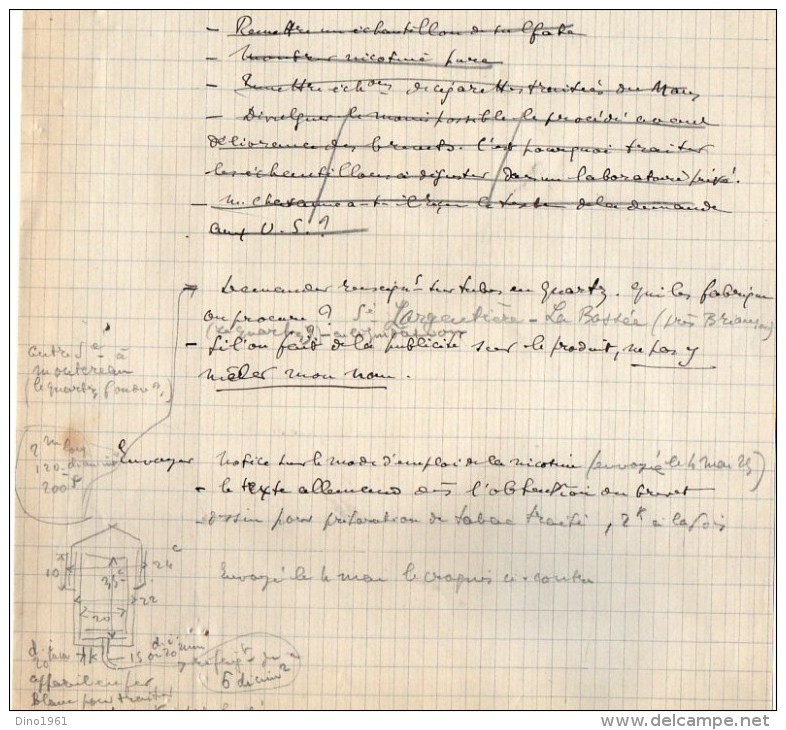 - Remettre un échantillon de sulfate
- Montrer nicotine pure
- Remettre échons de cigarettes traitées du Mans
- Divulguer le moins possible le procédé avant
délivrance des brevets. C'est pourquoi traiter
les échantillons à déguster dans un laboratoire privé.
- M. Chavanne a-t-il reçu le texte de la demande
aux U.S.?
- Demander renseignts sur tubes en quartz. Qui les fabrique
ou procure? Sé L'argentière - La Bessée (près Briançon)
(le quartz?)
- Si l'on fait de la publicité sur le produit, ne pas y
mêler mon nom.
autre Sé à
montereau
(le quartz fondu?)
2m long
120 diamre
200 f
Envoyer notice sur le mode d'emploi de la nicotine (envoyée le 4 mai 25)
- le texte allemand dès l'obtention du brevet
- dessin pour préparation de tabac traité, 2k à la fois
Envoyé le 4 mai le croquis ci-contre
10
35c
24c
22
20
15
6 décim2
appareil en fer
blanc pour traiter
Dino1961
delcampe.net